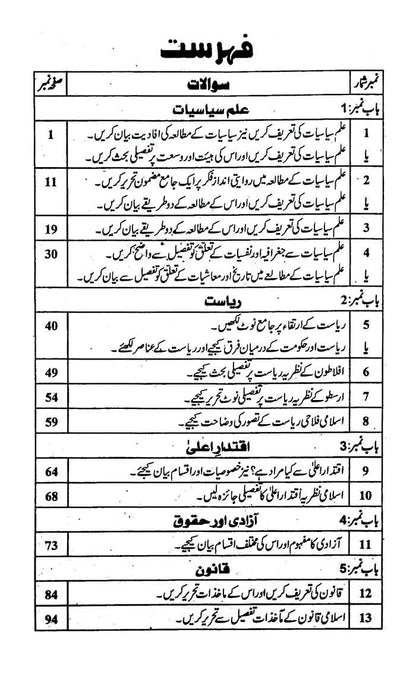 فہرست
نمبر شمار سوالات صفحہ نمبر
باب نمبر:1 علم سیاسیات
1 علم سیاسیات کی تعریف کریں نیز سیاسیات کے مطالعہ کی افادیت بیان کریں۔ 1
یا علم سیاسیات کی تعریف کریں اور اس کی ہیئت اور وسعت پر تفصیلی بحث کریں۔
2 علم سیاسیات کے مطالعہ میں روایتی انداز فکر پر ایک جامع مضمون تحریر کریں۔ 11
یا علم سیاسیات کی تعریف کریں اور اس کے مطالعہ کے دو طریقے بیان کریں۔
3 علم سیاسیات کی تعریف کریں اور اس کے مطالعہ کے دو طریقے بیان کریں۔ 19
4 علم سیاسیات سے جغرافیہ اور نفسیات کے تعلق کو تفصیل سے واضح کریں۔ 30
یا علم سیاسیات کے مطالعے میں تاریخ اور معاشیات کے تعلق کو تفصیل سے بیان کریں۔
باب نمبر:2 ریاست
5 ریاست کے ارتقاء پر جامع نوٹ لکھیں۔ 40
یا ریاست اور حکومت کے درمیان فرق کیجیے اور ریاست کے عناصر لکھئے۔
6 افلاطون کے نظریہ ریاست پر تفصیلی بحث کیجیے۔ 49
7 ارسطو کے نظریہ ریاست پر تفصیلی نوٹ تحریر کیجیے۔ 54
8 اسلامی فلاحی ریاست کے تصور کی وضاحت کیجیے۔ 59
باب نمبر:3 اقتدارِ اعلیٰ
9 اقتدار اعلیٰ سے کیا مراد ہے؟ نیز خصوصیات اور اقسام بیان کیجیے۔ 64
10 اسلامی نظریہ اقتدار اعلیٰ کا تفصیلی جائزہ لیں۔ 68
باب نمبر:4 آزادی اور حقوق
11 آزادی کا مفہوم اور اس کی مختلف اقسام بیان کیجیے۔ 73
باب نمبر:5 قانون
12 قانون کی تعریف کریں اور اس کے ماخذات تحریر کریں۔ 84
13 اسلامی قانون کے ماخذات تفصیل سے تحریر کریں۔ 94